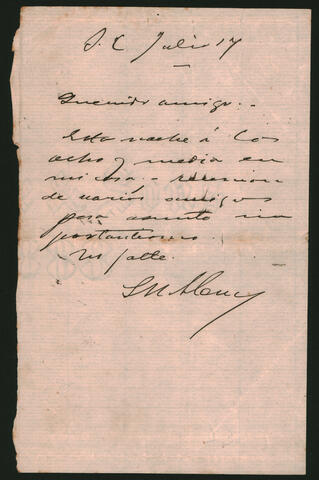 S. C Julio 17
Querido amigo.-
Esta noche á las
ocho y media en
mi casa - reunion
de varios amigos
para asunto im
portantisimo.
No falte.